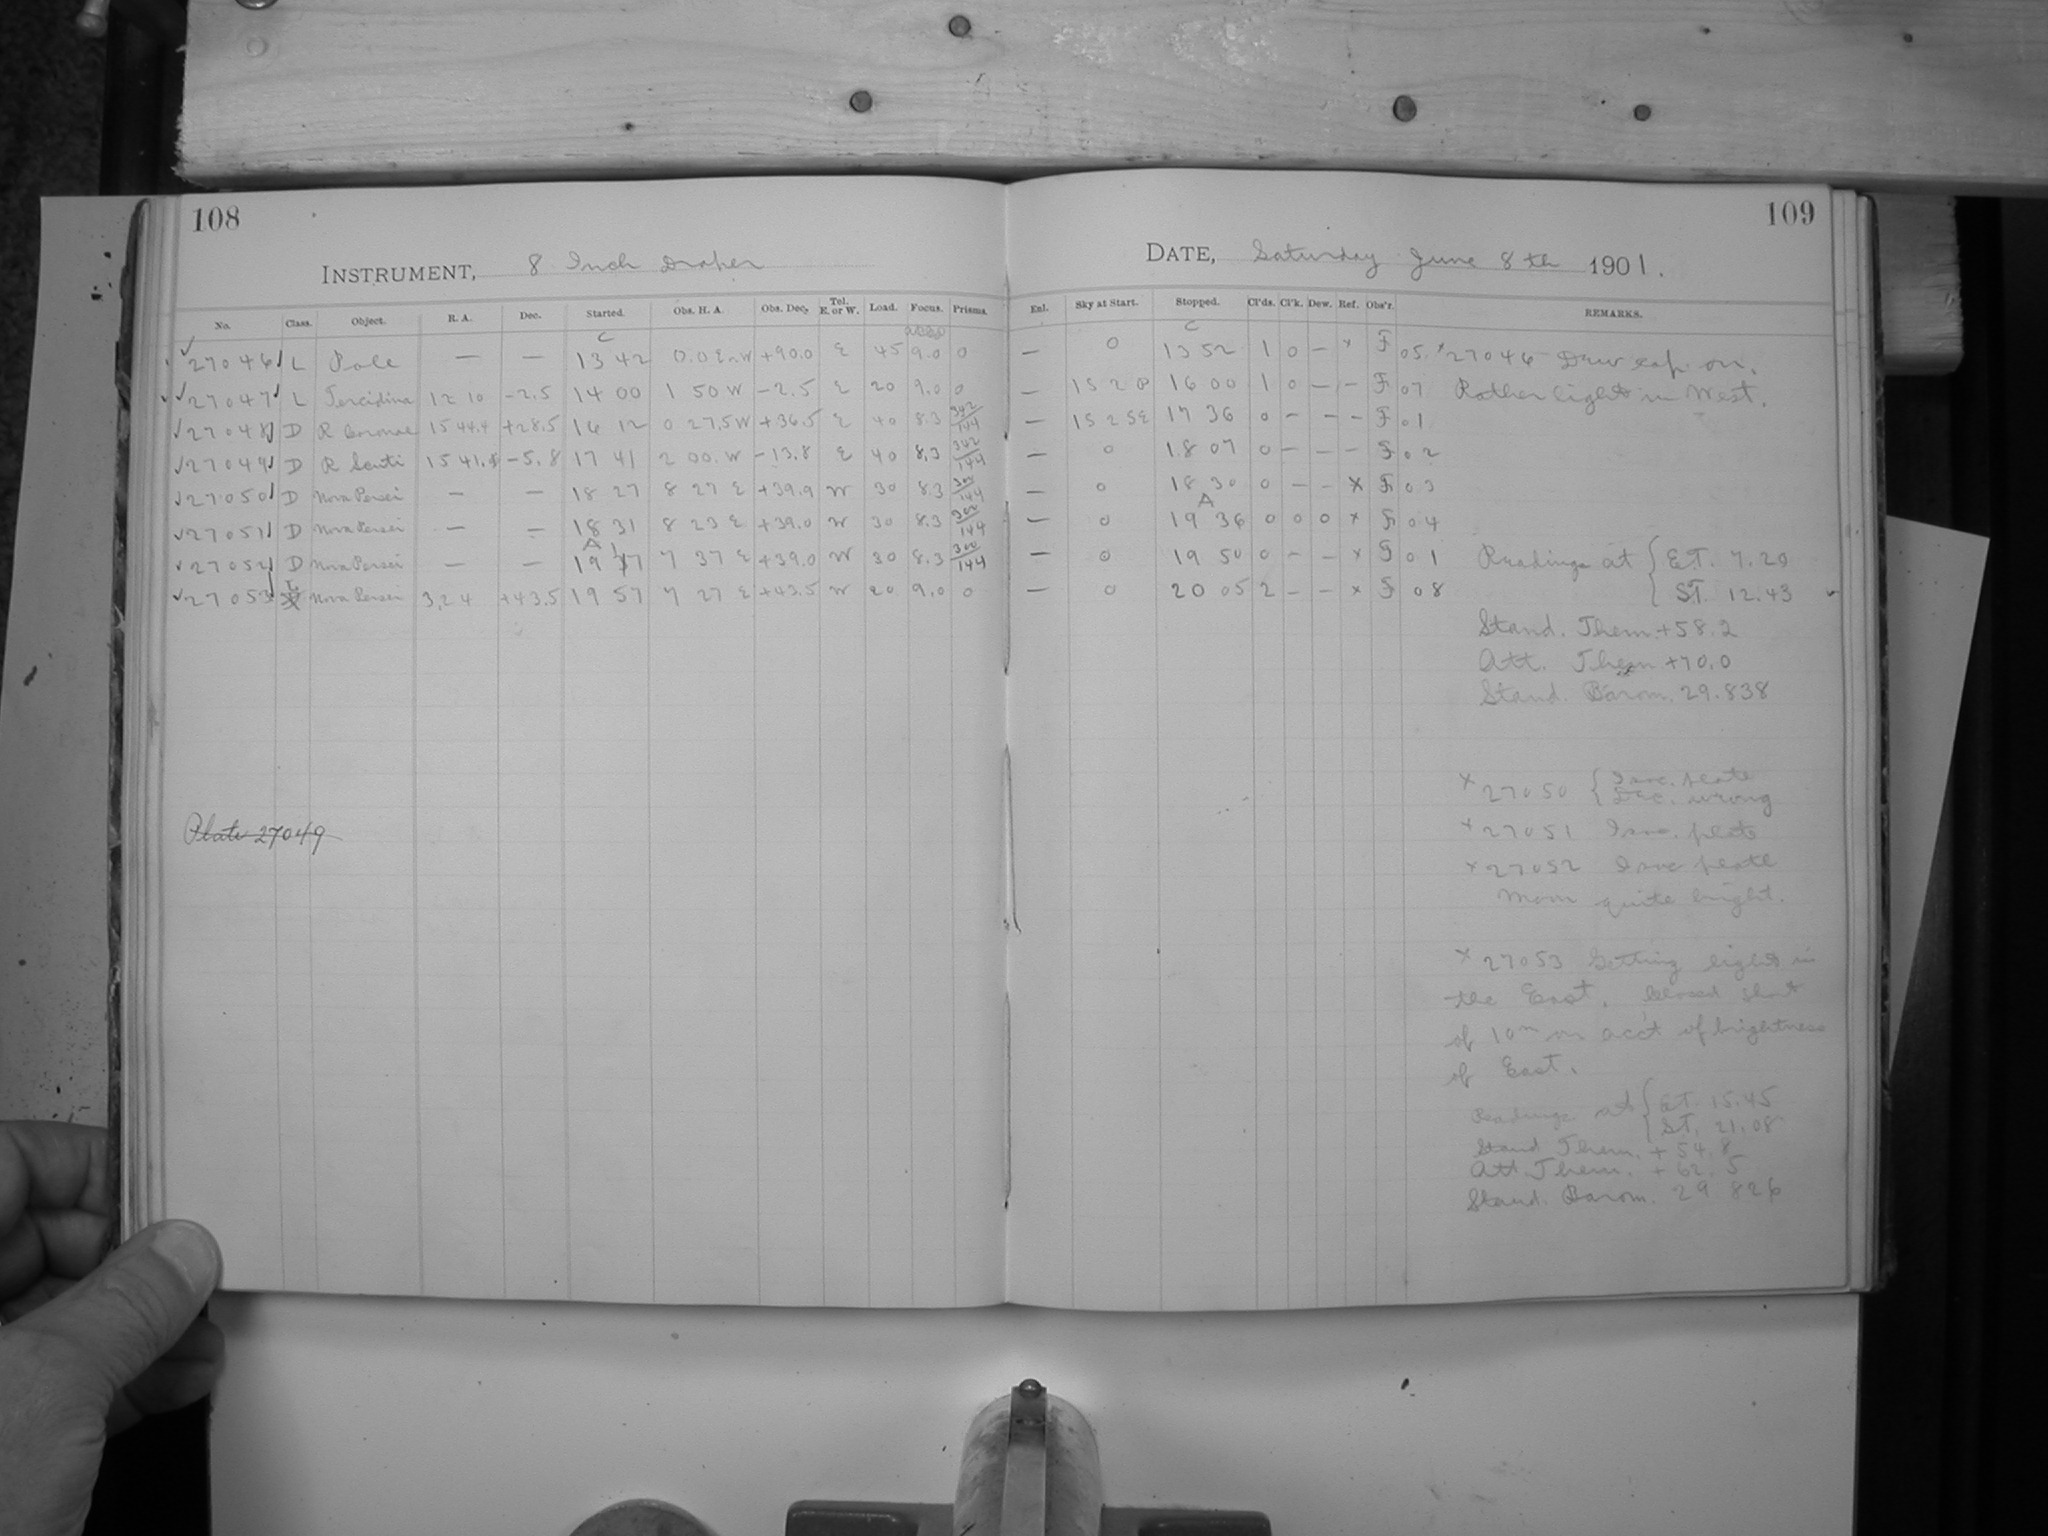 108
109
INSTRUMENT, 8 Inch Draper
DATE, Saturday June 8th 1901.
No. Class. Object. R. A. Dec. Started. Obs. H. A. Obs. Dec. Tel. E. or W. Load. Focus. Prisms. Enl. Sky at Start. Stopped. Cl'ds. Cl'k. Dew. Ref. Obs'r. REMARKS.
C C
✓ 27046 L Pole — — 13 42 0.0 E. W +90.0 E 45 9.0 0 — 0 13 52 1 0 — × F 05 ×27046 Dew cap on.
✓ 27047 L Tercidina 12 10 −2.5 14 00 1 50 W −2.5 E 20 9.0 0 — 1S 2 P 16 00 1 0 — — F 07 Rather light in West.
✓ 27048 D R Coronae 15 44.4 +28.5 16 12 0 27.5 W +36.5 E 40 8.3 342/144 — 1S 2 SE 17 36 0 — — — F 01
✓ 27049 D R 15 41. −5.8 17 41 2 00. W −13.8 E 40 8.3 342/144 — 0 18 07 0 — — — F 02
✓ 27050 D Nova Persei — — 18 27 8 27 E +39.9 W 30 8.3 300/144 — 0 18 30 0 — — × F 03
A
✓ 27051 D Nova Persei — — 18 31 8 23 E +39.0 W 30 8.3 300/144 — 0 19 36 0 0 0 × F 04
A
✓ 27052 D Nova Persei — — 19 47 7 37 E +39.0 W 30 8.3 300/144 — 0 19 50 0 — — × F 01 Readings at { E.T. 7.20
✓ 27053 L Nova Persei 3,24 +43.5 19 57 7 27 E +43.5 W 20 9.0 0 — 0 20 05 2 — — × F 08 S.T. 12.43
Stand. Them. +58.2
Att. Them +70.0
Stand. Barom. 29.838
×27050 { Isoc. plate
Dec. wrong
×27051 Isoc. plate
×27052 Isoc plate
Moon quite bright.
Plate 27049
×27053 Getting light in
the East. Closed short
of 10m on acc't of brightness
of East.
Readings at { E.T. 15.45
S.T. 21.08
Stand Them. +54.8
Att. Them. +62.5
Stand. Barom. 29 826